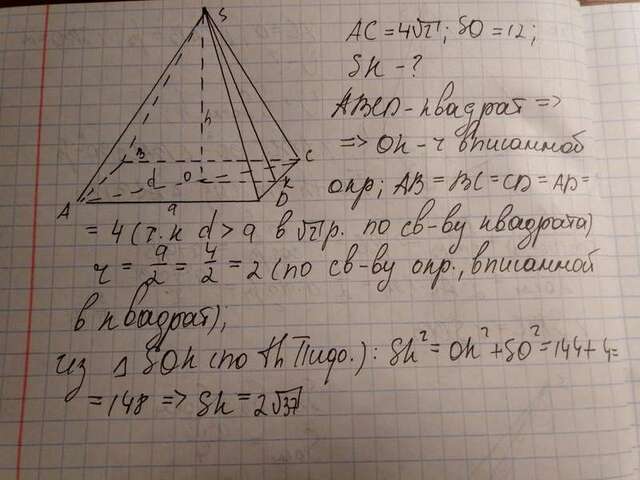 S
AC = 4√2; SO = 12;
SK - ?
ABCD - квадрат =>
=> OK - r вписанной
окр; AB = BC = CD = AD =
= 4 (т.к d > a в √2 р. по св-ву квадрата)
r = a/2 = 4/2 = 2 (по св-ву окр., вписанной
в квадрат);
Из △ SOK (по th Пифо.): SK² = OK² + SO² = 144 + 4 =
= 148 => SK = 2√37
h
B
C
d
O
K
A
a
D